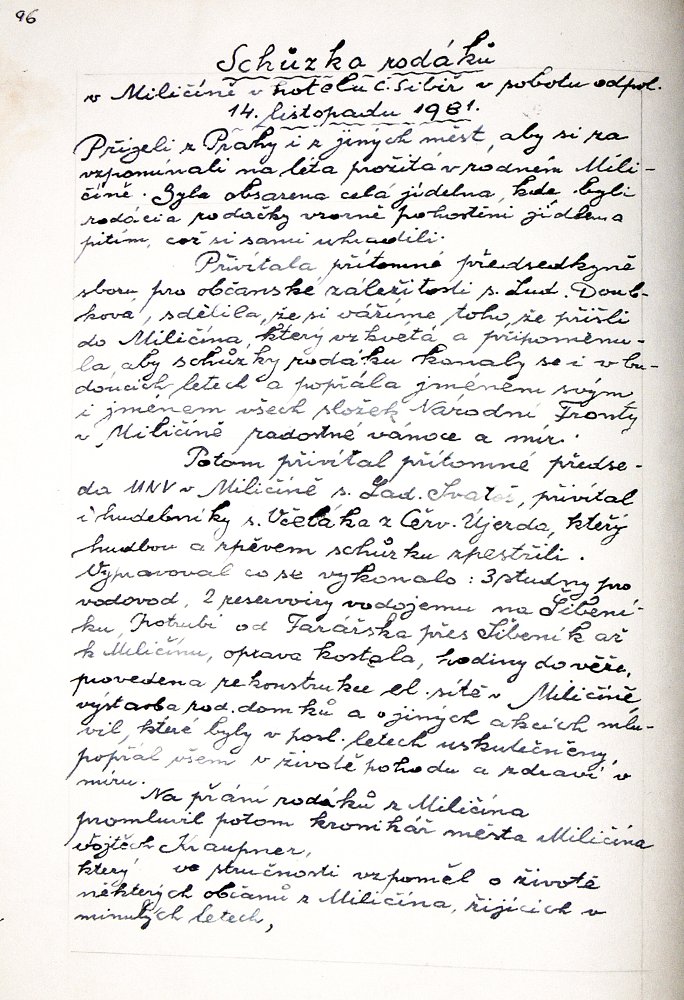 96
Schůzka rodáků
v Miličíně v hotelu Č. Sibiř v sobotu odpol.
14. listopadu 1981.
Přijeli z Prahy i z jiných měst, aby si za
vzpomínali na léta prožitá v rodném Mili-
číně. Byla obsazena celá jídelna, kde byli
rodáci a rodačky vzorně pohostěni jídlem a
pitím, což si sami uhradili.
Přivítala přítomné předsedkyně
sboru pro občanské záležitosti s. Lud. Doub-
ková, sdělila, že si vážíme toho, že přišli
do Miličína, který vzkvétá a připomenu-
la, aby schůzky rodáků konaly se i v bu-
doucích letech a popřála jménem svým
i jménem všech složek Národní Fronty
v Miličíně radostné vánoce a mír.
Potom přivítal přítomné předse-
da MNV v Miličíně s. Lad. Svatoš, přivítal
i hudebníky s. Včeláka z Červ. Újezda, který
hudbou a zpěvem schůzku zpestřili.
Vypravoval co se vykonalo: 3 studny pro
vodovod, 2 reservoiry vodojemu na Šibení-
ku, Potrubí od Farářska přes Šibeník až
k Miličínu, oprava kostela, hodiny do věže,
provedena rekonstrukce el. sítě v Miličíně,
výstavba rod. domků a o jiných akcích mlu-
vil, které byly v posl. letech uskutečněny,
popřál všem v životě pohodu a zdraví v
míru.
Na přání rodáků z Miličína
promluvil potom kronikář města Miličína
Vojtěch Kraupner,
který ve stručnosti vzpoměl o životě
některých občanů z Miličína, žijících v
minulých letech,